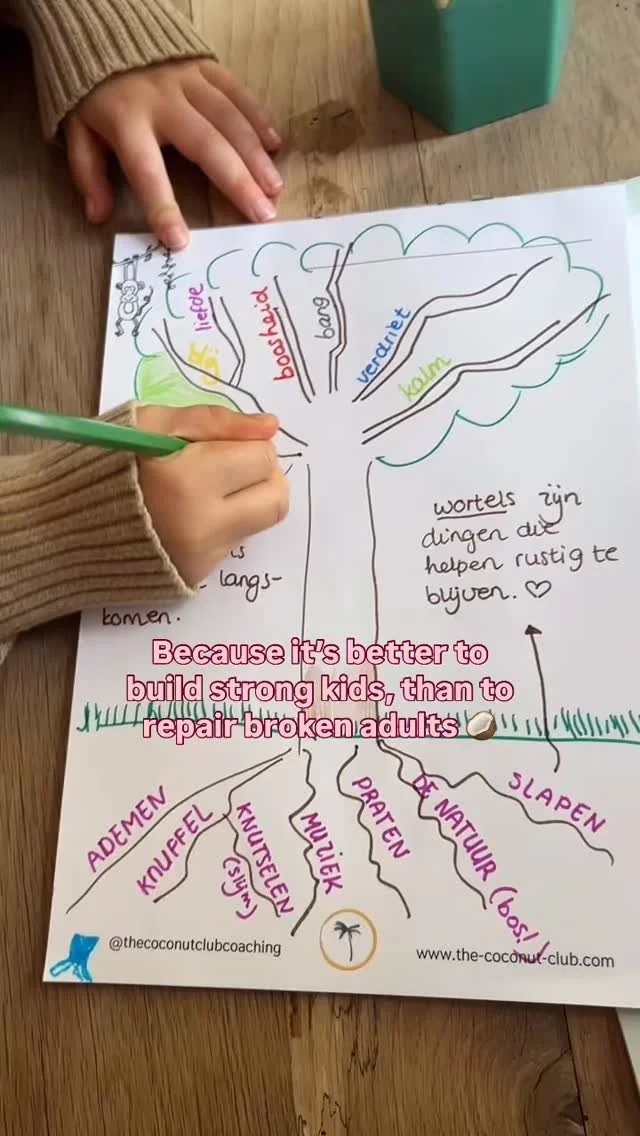 liefde
boosheid
bang
verdriet
kalm
wortels zijn
dingen die
helpen rustig te
blijven. ♡
langs-
komen.
Because it's better to
build strong kids, than to
repair broken adults 🥥
ADEMEN
KNUFFEL
KNUTSELEN
(slijm)
MUZIEK
PRATEN
DE NATUUR (bos!)
SLAPEN
@thecoconutclubcoaching
www.the-coconut-club.com